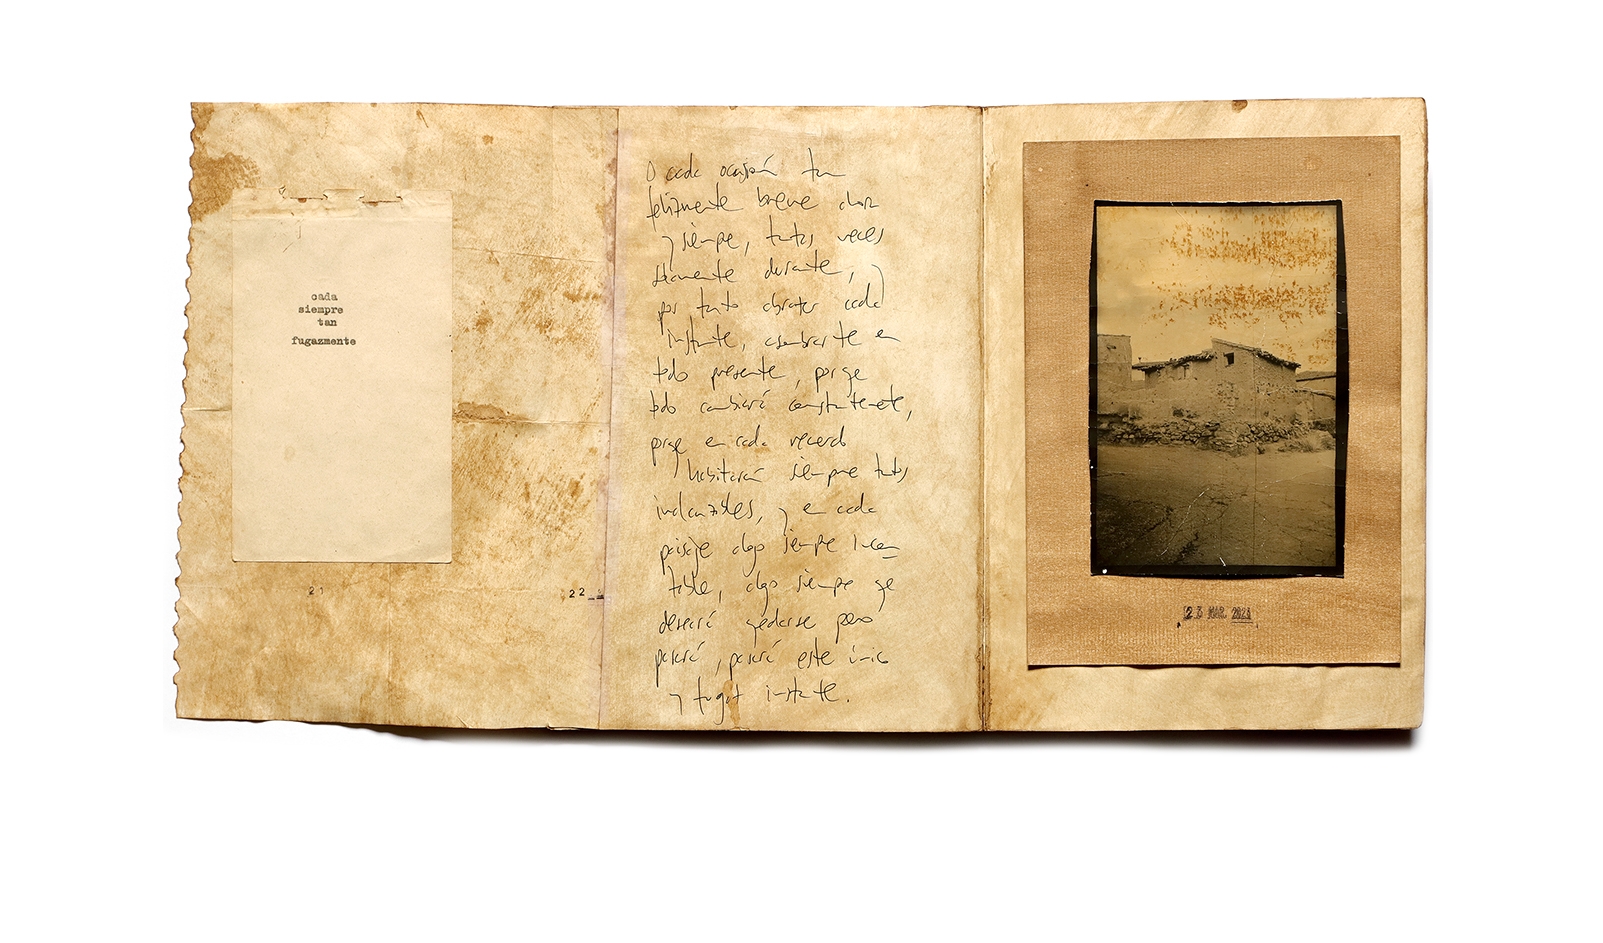 cada
siempre
tan
fugazmente
21
22
O cada ocasión tan
felizmente breve ahora
y siempre, tantas veces
durante, y
por tanto cada
instante, en
todo presente, porque
todo cambiará constantemente,
porque en cada recuerdo
habitarán siempre tantos
y en cada
paisaje algo siempre incon
table, algo siempre que
deseará quedarse pero
pasará, pasará este único
y fugaz instante.
23 MAR. 2021